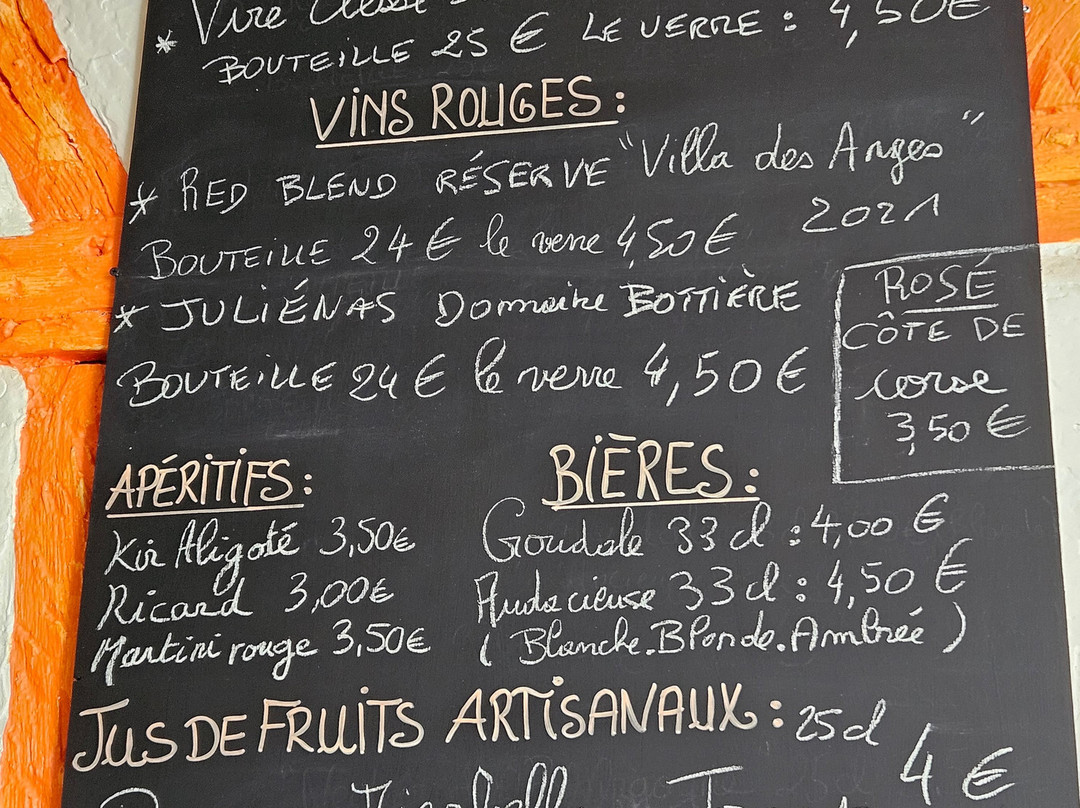 * Viré Clessé
BOUTEILLE 25 € LE VERRE : 4,50€
VINS ROUGES :
* RED BLEND RÉSERVE "Villa des Anges"
2021
BOUTEILLE 24 € le verre 4,50 €
* JULIÉNAS Domaine BOTTIÈRE
BOUTEILLE 24 € le verre 4,50 €
ROSÉ
CÔTE DE
corse
3,50 €
APÉRITIFS :
Kir Aligoté 3,50€
Ricard 3,00€
Martini rouge 3,50€
BIÈRES :
Goudale 33 cl : 4,00 €
Audacieuse 33 cl : 4,50 €
(Blanche.Blonde.Ambrée)
JUS DE FRUITS ARTISANAUX : 25 cl 4 €